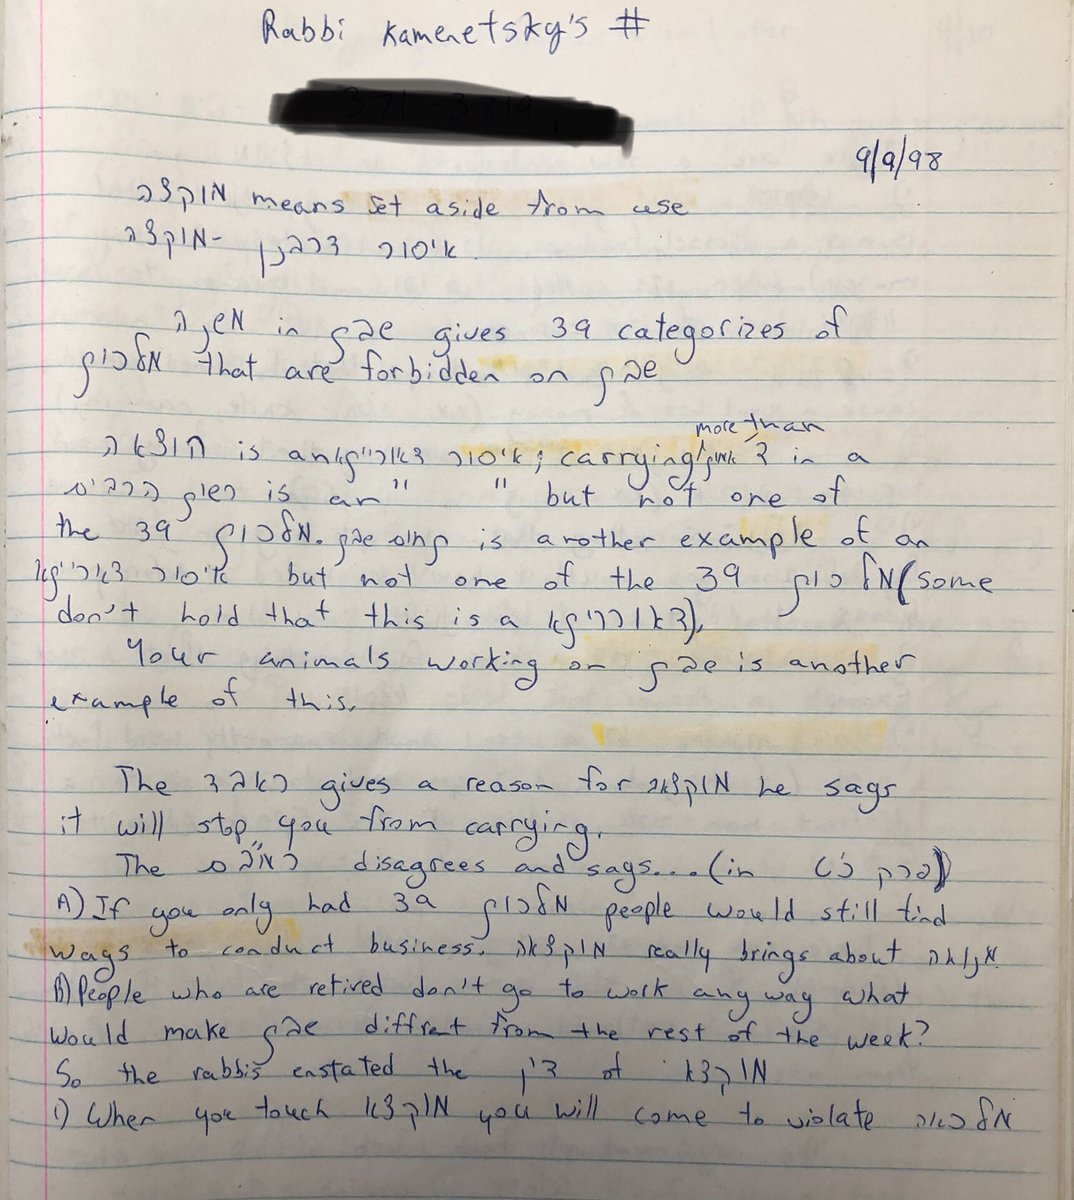 Rabbi Kamenetsky's #
9/9/98
מוקצה means set aside from use
מוקצה- איסור דרבנן.
משנה in שבת gives 39 categorizes of
מלכות that are forbidden on שבת
more than
הוצאה is an איסור דאורייתא; carrying ד אמות in a
רשות הרבים is an " " but not one of
the 39 מלכות. תחום שבת is another example of an
איסור דאורייתא but not one of the 39 מלכות (some
don't hold that this is a דאורייתא).
Your animals working on שבת is another
example of this.
The ראבד gives a reason for מוקצה he says
it will stop you from carrying.
The רמב"ם disagrees and says... (in פרק)
A) If you only had 39 מלכות people would still find
ways to conduct business. מוקצה really brings about
B) People who are retired don't go to work any way what
would make שבת diffrent from the rest of the week?
So the rabbis enstated the דין of מוקצא
1) When you touch מוקצא you will come to violate מלכאה